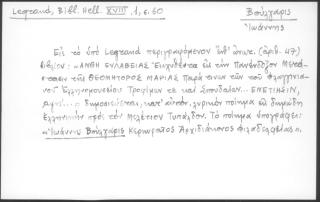 Legrand, Bibl. Hell. XVIII, 1, σ. 60
Βούλγαρις
Ἰωάννης
Εἰς τὸ ὑπὸ Legrand περιγραφόμενον ὑπ' ἀριθ. (ἀριθ. 47)
βιβλίον: «ΑΝΘΗ ΕΥΛΑΒΕΙΑΣ Ἐκχυθέντα εἰς τὴν Πανένδοξον Μετά-
στασιν τῆς ΘΕΟΜΗΤΟΡΟΣ ΜΑΡΙΑΣ Παρὰ τῶν τοῦ Φλαγγινια-
νοῦ Ἑλληνομουσείου Τροφίμων τε καὶ Σπουδαίων... ΕΝΕΤΙΗΣΙΝ,
͵αψη΄...» δημοσιεύεται, κατ' αὐτόν, λυρικὸν ποίημα εἰς δημώδη
ἑλληνικὴν πρὸς τὸν Μελέτιον Τυπάλδον. Τὸ ποίημα ὑπογράφει:
«Ἰωάννης Βούλγαρις Κερκυραῖος Ἀρχιδιάκονος Φιλαδελφείας».